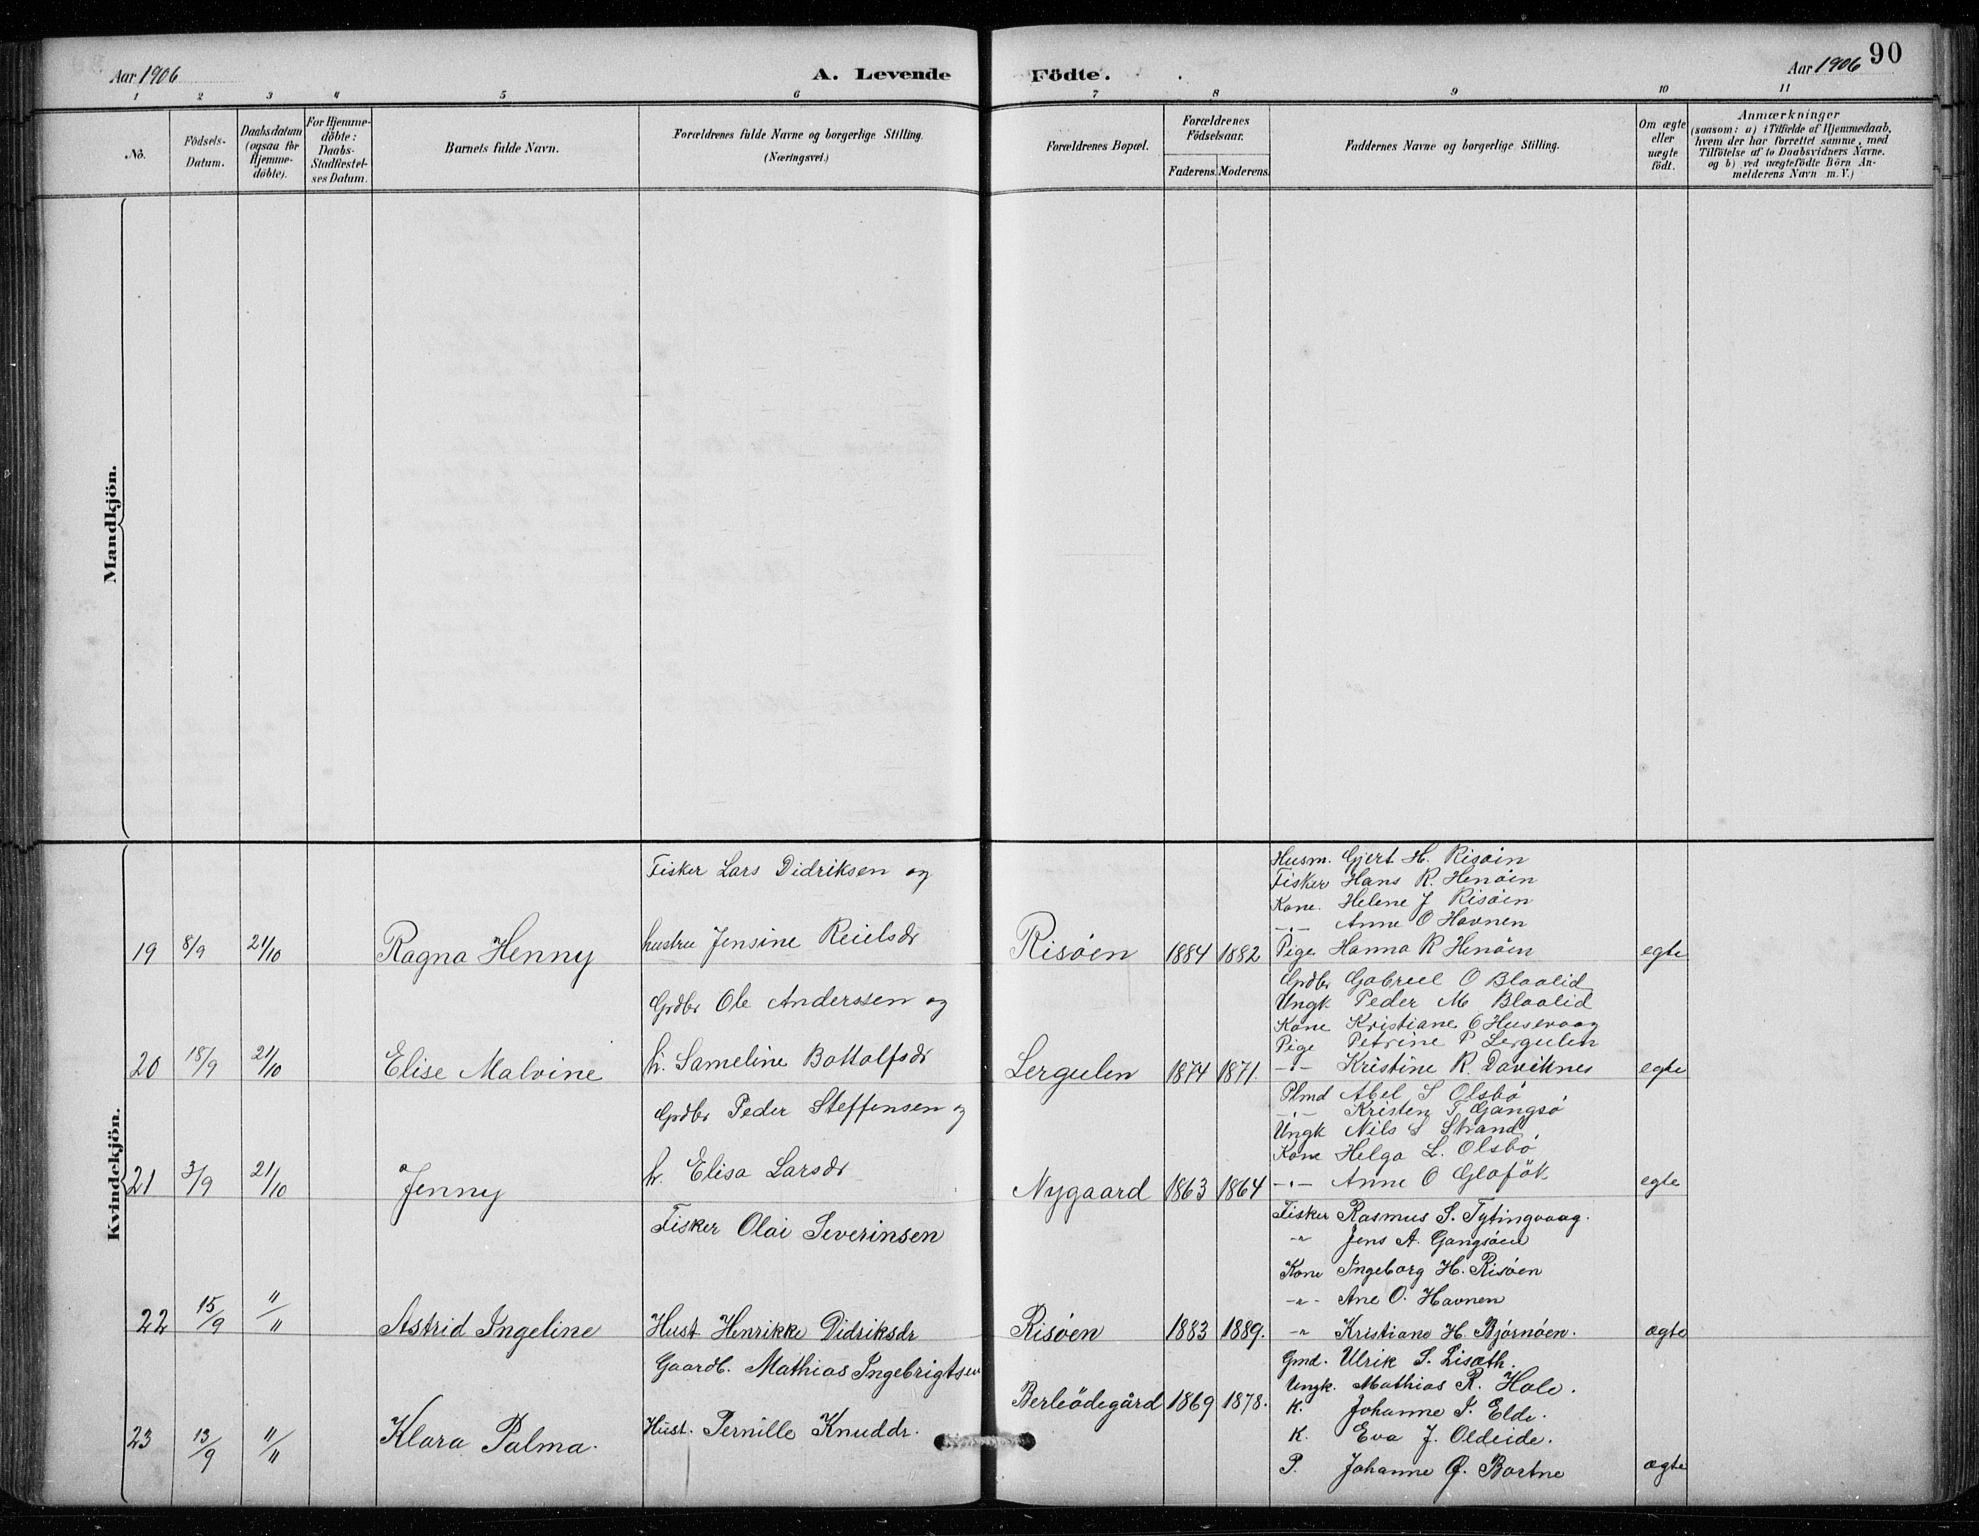 90
Aar 1906
A. Levende
Födte.
Aar 1906
1 2 3 4 5 6 7 8 9 10 11
No.
Födsels-
Datum.
Daabsdatum
(ogsaa for
Hjemme-
döbte).
For Hjemme-
döbte:
Daabs-
Stadfæstel-
ses Datum.
Barnets fulde Navn.
Forældrenes fulde Navne og borgerlige Stilling.
(Næringsvei.)
Forældrenes Bopæl.
Forældrenes
Födselsaar.
Faderens.
Moderens.
Faddernes Navne og borgerlige Stilling.
Om ægte
eller
uægte
födt.
Anmærkninger
(saasom: a) i Tilfælde af Hjemmedaab,
hvem der har forrettet samme, med
Tilföielse af to Daabsvidners Navne.
og b) ved uægtefödte Börn An-
melderens Navn m. V.)
Mandkjön.
Kvindekjön.
19 8/9 21/10 Ragna Henny
Fisker Lars Didriksen og
hustru Jensine Reielsdr
Risöen 1884 1882
Husm. Gjert H. Risöin
Fisker Hans R. Henöen
Kone. Helene J Risöin
-"- Anne O Havnen
Pige Hanna R Henöen
egte
20 18/9 21/10 Elise Malvine
Grdbr Ole Anderssen og
h. Sameline Bottolfsdr
Lergulen 1874 1871.
Grdbr Gabriel O Blaalid
Ungk Peder M Blaalid
Kone Kristiane E Husevaag
Pige Petrine P Lergulen
-"- Kristine R. Daviknes
egte
21 3/9 21/10 Jenny
Grdbr Peder Steffensen og
h. Elisa Larsdr
Nygaard 1863 1864
Plmd Abel S Olsbö
-"- Kristen T Gangsö
Ungk Nils S Strand
Kone Helga L. Olsbö
-"- Anne O
egte
22 15/9 "/" Astrid Ingeline
Fisker Olai Severinsen
Hust Henrikke Didriksdr
Risöen 1883 1889.
Fisker Rasmus S. Tytingvaag.
-"- Jens A. Gangsöen
Kone Ingeborg H. Risöen
-"- Ane O. Havnen
-"- Kristiane H. Björnöen.
ægte
23 13/9 "/" Klara Palma.
Gaardb. Mathias Ingebrigtsen
Hust. Pernille Knuddr.
Berleödegård 1869 1878.
Gmd. Ulrik S. Lisæth.
Ungk. Mathias R. Hole.
K. Johanne S. Elde.
K. Eva J. Oldeide.
P. Johanne Ø. Bortne
ægte